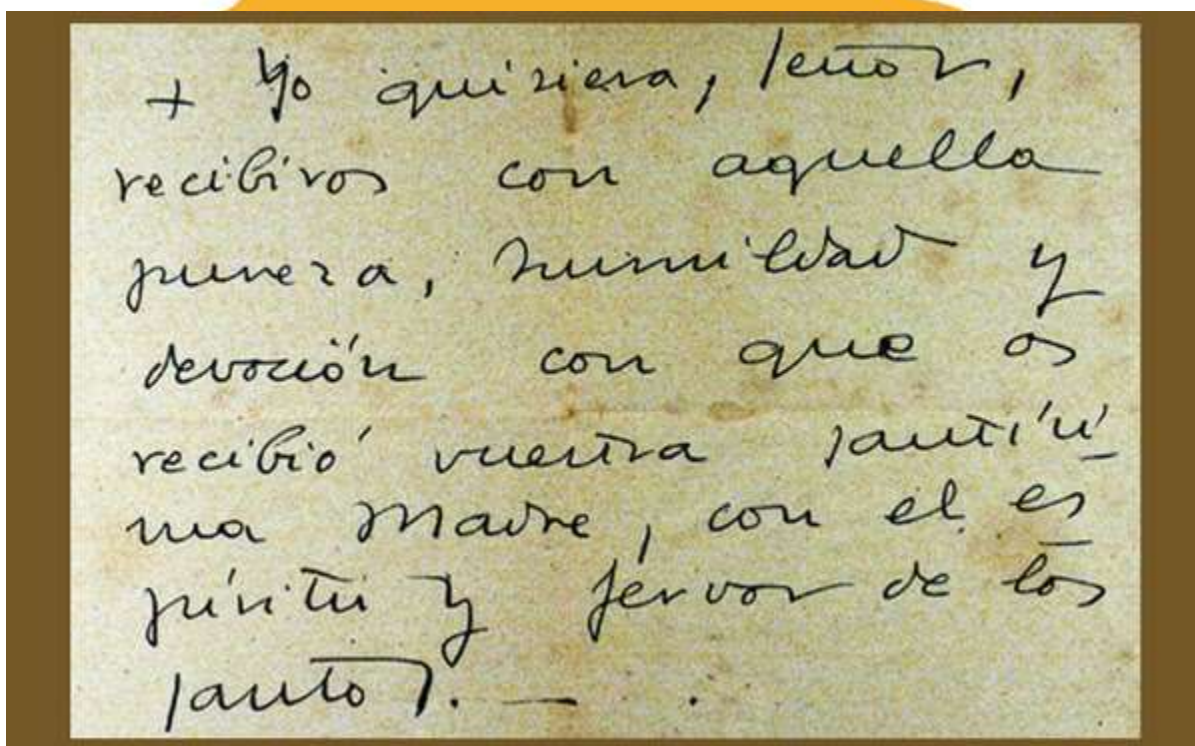 + Yo quisiera, Señor,
recibiros con aquella
pureza, humildad y
devoción con que os
recibió vuestra santísi
ma Madre, con el es
píritu y fervor de los
santos. — .